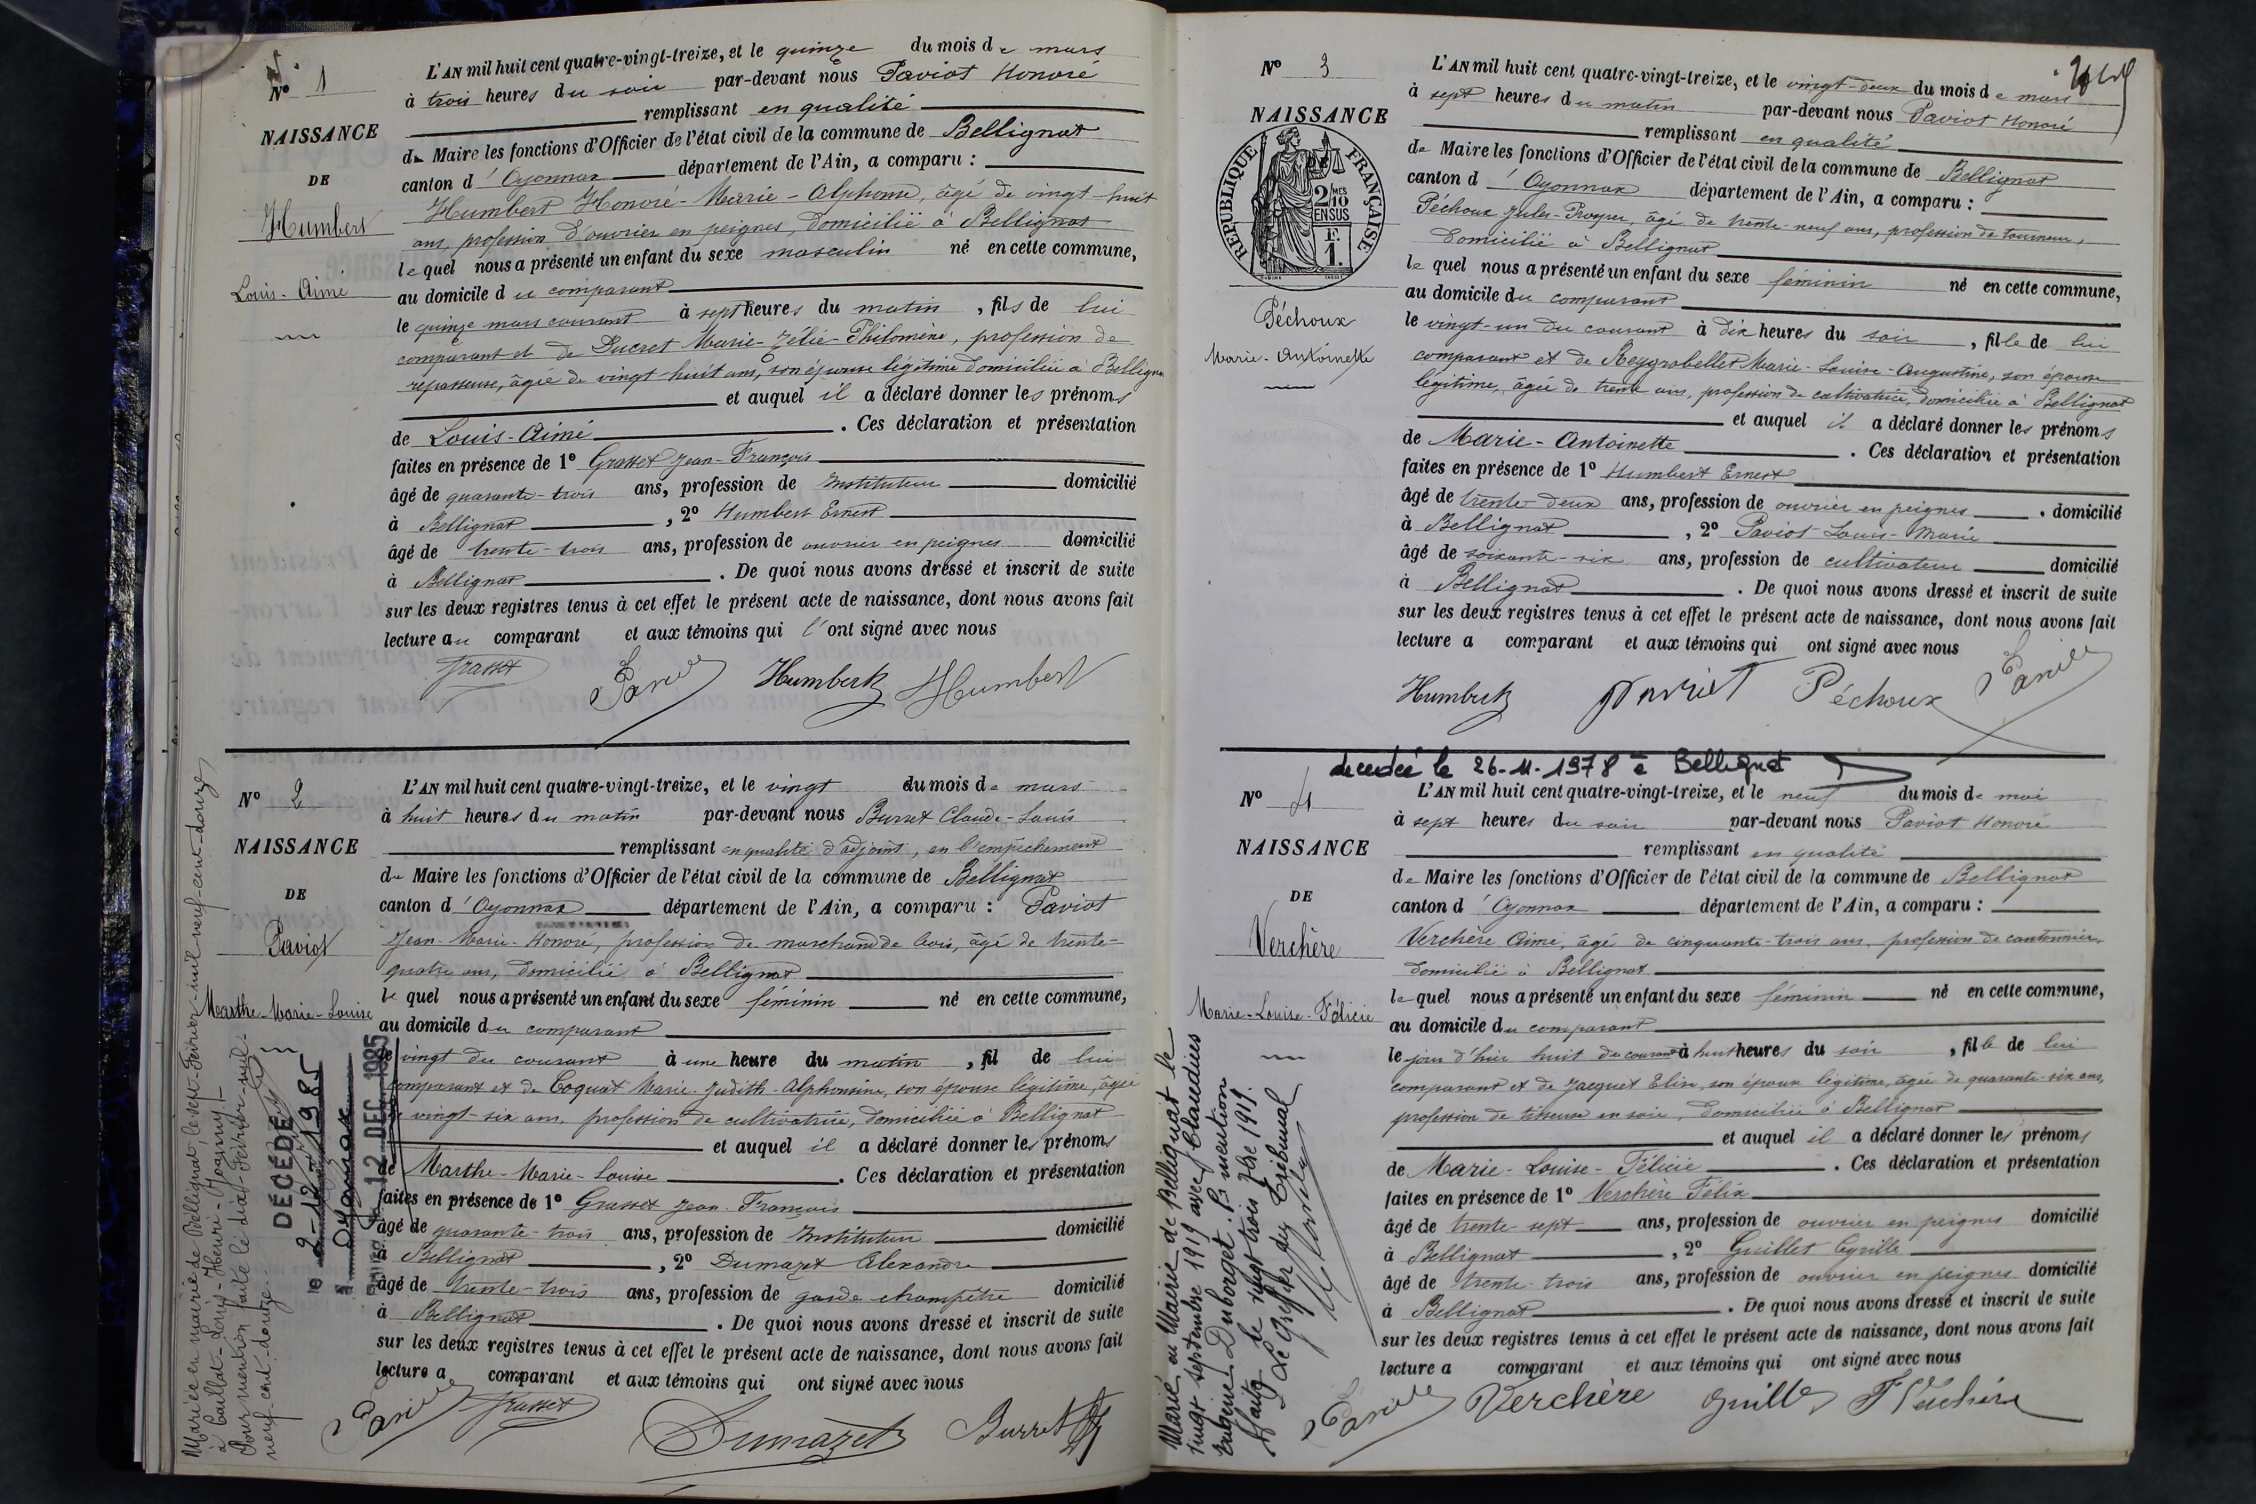 N° 1
NAISSANCE
DE
Humbert
Louis-Aimé
L'AN mil huit cent quatre-vingt-treize, et le quinze du mois de mars
à trois heures du soir par-devant nous Paviot Honoré
remplissant en qualité
de Maire les fonctions d'Officier de l'état civil de la commune de Bellignat
canton d'Oyonnax département de l'Ain, a comparu :
Humbert Honoré-Marie-Alphonse, âgé de vingt-huit
ans, profession d'ouvrier en peignes, domicilié à Bellignat
lequel nous a présenté un enfant du sexe masculin né en cette commune,
au domicile du comparant
le quinze mars courant à sept heures du matin, fils de lui
comparant et de Ducret Marie-Zélie-Philomène, profession de
repasseuse, âgée de vingt-huit ans, son épouse légitime domiciliée à Bellignat
et auquel il a déclaré donner les prénoms
de Louis-Aimé. Ces déclaration et présentation
faites en présence de 1° Grasset Jean-François
âgé de quarante-trois ans, profession de Instituteur domicilié
à Bellignat, 2° Humbert Ernest
âgé de trente-trois ans, profession de ouvrier en peignes domicilié
à Bellignat. De quoi nous avons dressé et inscrit de suite
sur les deux registres tenus à cet effet le présent acte de naissance, dont nous avons fait
lecture au comparant et aux témoins qui l'ont signé avec nous
Grasset Paviot Humbert Humbert
N° 2
NAISSANCE
DE
Paviot
Marthe-Marie-Louise
Mariée en mairie de Bellignat, le sept Février mil neuf-cent-douze,
à Caillat-Louis-Henri-Joanny
Pour mention faite le dix-Février-mil-
neuf-cent-douze
DÉCÉDÉ
le 2-12-1985
à Oyonnax
12 DEC. 1985
L'AN mil huit cent quatre-vingt-treize, et le vingt du mois de mars
à huit heures du matin par-devant nous Burret Claude-Louis
remplissant en qualité d'adjoint, en l'empêchement
du Maire les fonctions d'Officier de l'état civil de la commune de Bellignat
canton d'Oyonnax département de l'Ain, a comparu : Paviot
Jean-Marie-Honoré, profession de marchand de bois, âgé de trente-
quatre ans, domicilié à Bellignat
lequel nous a présenté un enfant du sexe féminin né en cette commune,
au domicile du comparant
le vingt du courant à une heure du matin, fil de lui
comparant et de Coquat Marie-Judith-Alphonsine, son épouse légitime, âgée
de vingt-six ans, profession de cultivatrice, domiciliée à Bellignat
et auquel il a déclaré donner les prénoms
de Marthe-Marie-Louise. Ces déclaration et présentation
faites en présence de 1° Grasset Jean-François
âgé de quarante-trois ans, profession de Instituteur domicilié
à Bellignat, 2° Dumazet Alexandre
âgé de trente-trois ans, profession de garde champêtre domicilié
à Bellignat. De quoi nous avons dressé et inscrit de suite
sur les deux registres tenus à cet effet le présent acte de naissance, dont nous avons fait
lecture a comparant et aux témoins qui ont signé avec nous
Paviot Grasset Dumazet Burret
N° 3
NAISSANCE
RÉPUBLIQUE FRANÇAISE
2/10 MES
EN SUS
F.
1.
Péchoux
Marie-Antoinette
L'AN mil huit cent quatre-vingt-treize, et le vingt-deux du mois de mars
à sept heures du matin par-devant nous Paviot Honoré
remplissant en qualité
de Maire les fonctions d'Officier de l'état civil de la commune de Bellignat
canton d'Oyonnax département de l'Ain, a comparu :
Péchoux Jules-Prosper, âgé de trente-neuf ans, profession de tourneur,
domicilié à Bellignat
lequel nous a présenté un enfant du sexe féminin né en cette commune,
au domicile du comparant
le vingt-un du courant à dix heures du soir, fille de lui
comparant et de Reygrobellet Marie-Louise-Augustine, son épouse
légitime, âgée de trente ans, profession de cultivatrice, domiciliée à Bellignat
et auquel il a déclaré donner les prénoms
de Marie-Antoinette. Ces déclaration et présentation
faites en présence de 1° Humbert Ernest
âgé de trente-deux ans, profession de ouvrier en peignes. domicilié
à Bellignat, 2° Paviot Louis-Marie
âgé de soixante-six ans, profession de cultivateur domicilié
à Bellignat. De quoi nous avons dressé et inscrit de suite
sur les deux registres tenus à cet effet le présent acte de naissance, dont nous avons fait
lecture a comparant et aux témoins qui ont signé avec nous
Humbert Paviot Péchoux Paviot
décédée le 26-11-1978 à Bellignat
N° 4
NAISSANCE
DE
Verchère
Marie-Louise-Félicie
Marié en Mairie de Bellignat le
vingt septembre 1919 avec Claudius
Eugène Duborget. Pr mention
Nantua le vingt trois 7bre 1919.
Le Greffier du Tribunal
L'AN mil huit cent quatre-vingt-treize, et le neuf du mois de mai
à sept heures du soir par-devant nous Paviot Honoré
remplissant en qualité
de Maire les fonctions d'Officier de l'état civil de la commune de Bellignat
canton d'Oyonnax département de l'Ain, a comparu :
Verchère Aimé, âgé de cinquante-trois ans, profession de cantonnier,
domicilié à Bellignat
lequel nous a présenté un enfant du sexe féminin né en cette commune,
au domicile du comparant
le jour d'hier huit du courant à huit heures du soir, fille de lui
comparant et de Jacquet Elise, son épouse légitime, âgée de quarante-six ans,
profession de tisseuse en soie, domiciliée à Bellignat
et auquel il a déclaré donner les prénoms
de Marie-Louise-Félicie. Ces déclaration et présentation
faites en présence de 1° Verchère Félix
âgé de trente-sept ans, profession de ouvrier en peignes domicilié
à Bellignat, 2° Guillet Cyrille
âgé de trente-trois ans, profession de ouvrier en peignes domicilié
à Bellignat. De quoi nous avons dressé et inscrit de suite
sur les deux registres tenus à cet effet le présent acte de naissance, dont nous avons fait
lecture a comparant et aux témoins qui ont signé avec nous
Paviot Verchère Guillet F Verchère